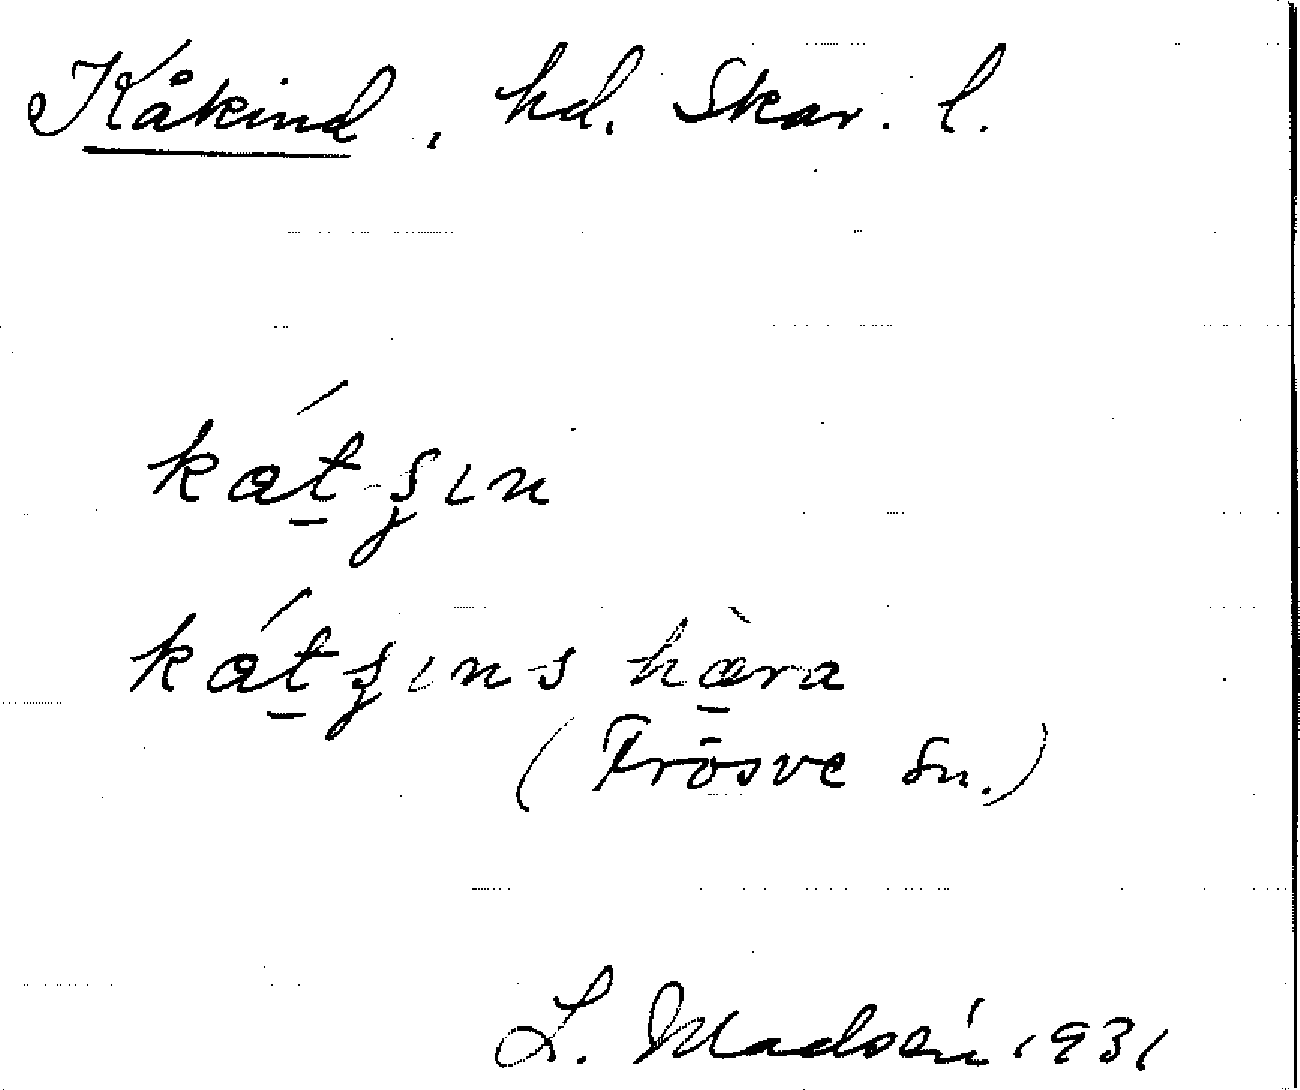 Kåkind, hd. Skar. l.
kát̠ʂın
kát̠ʂıns hæ̀ra
(Frösve sn.)
L. Madsén 1931